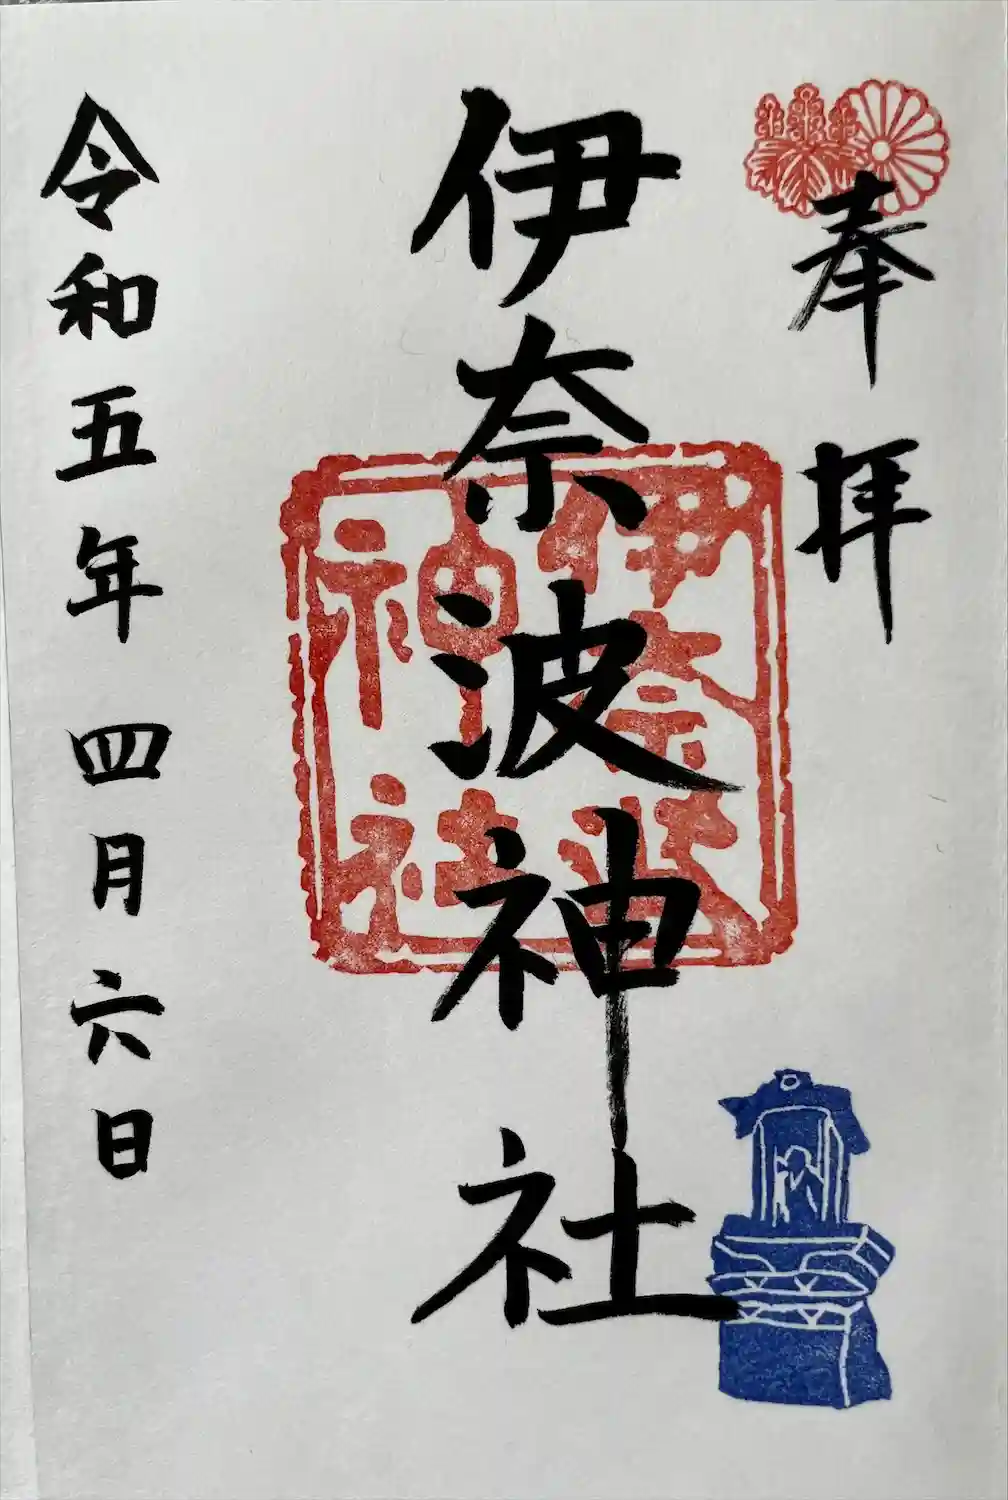 奉拝
伊奈波神社
伊奈波神社
令和五年四月六日